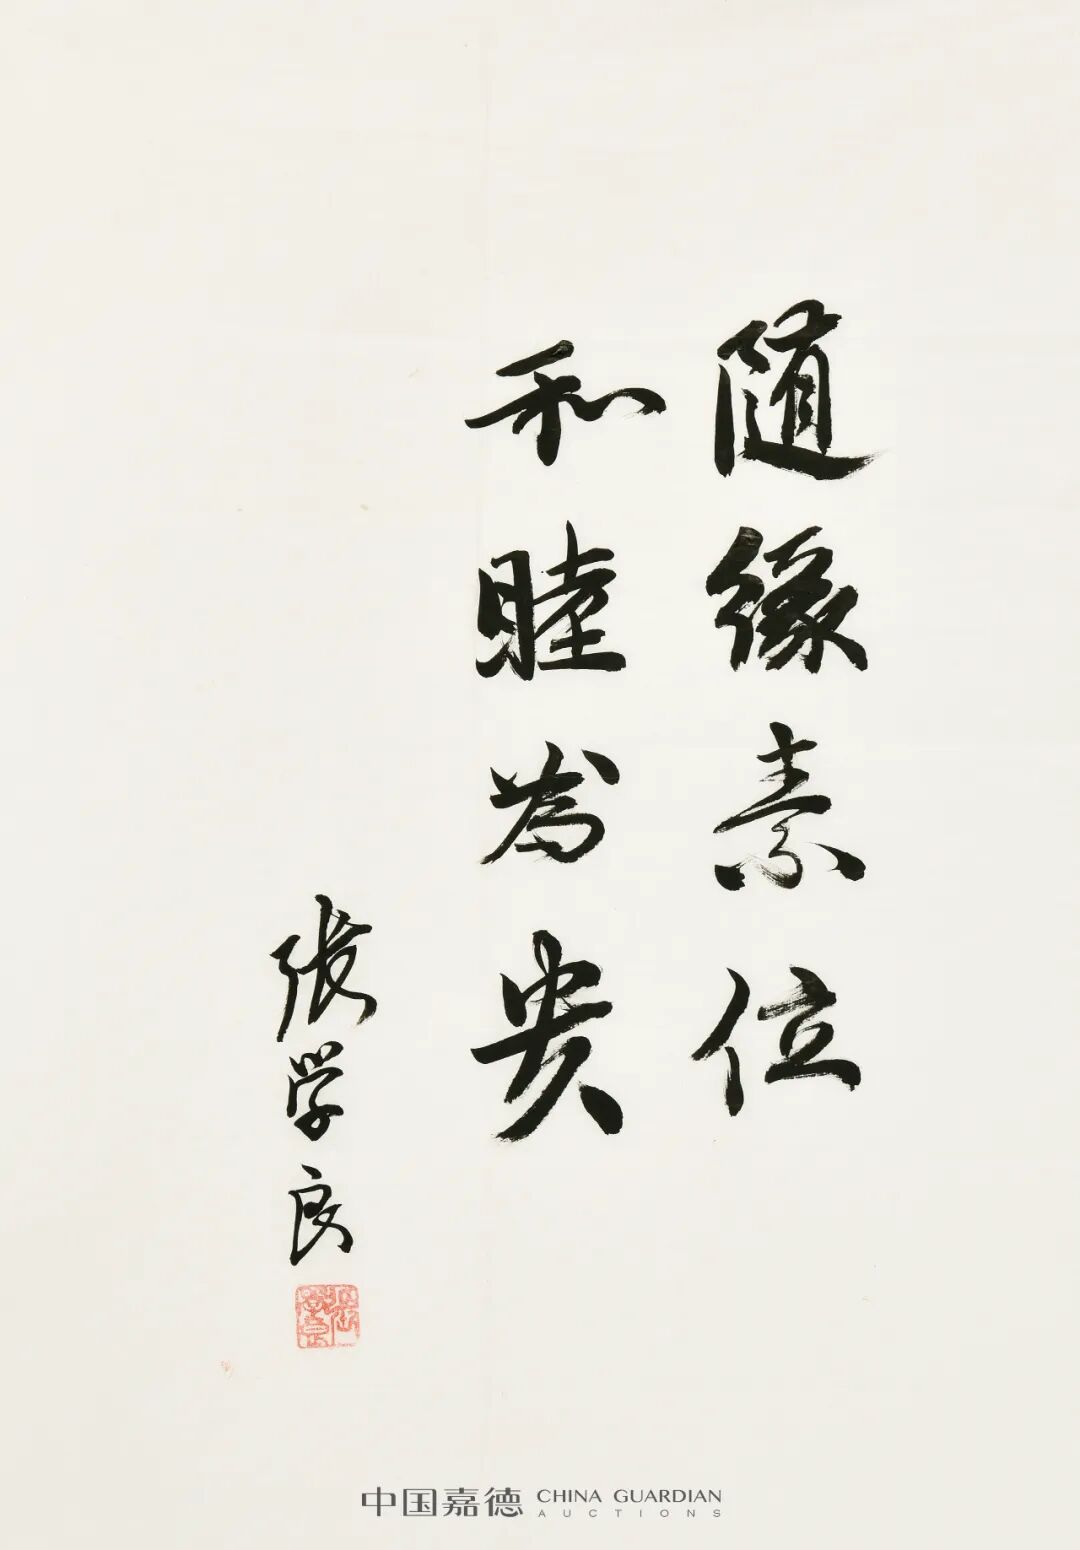 随缘素位
和睦为贵
张学良
中国嘉德 CHINA GUARDIAN
AUCTIONS